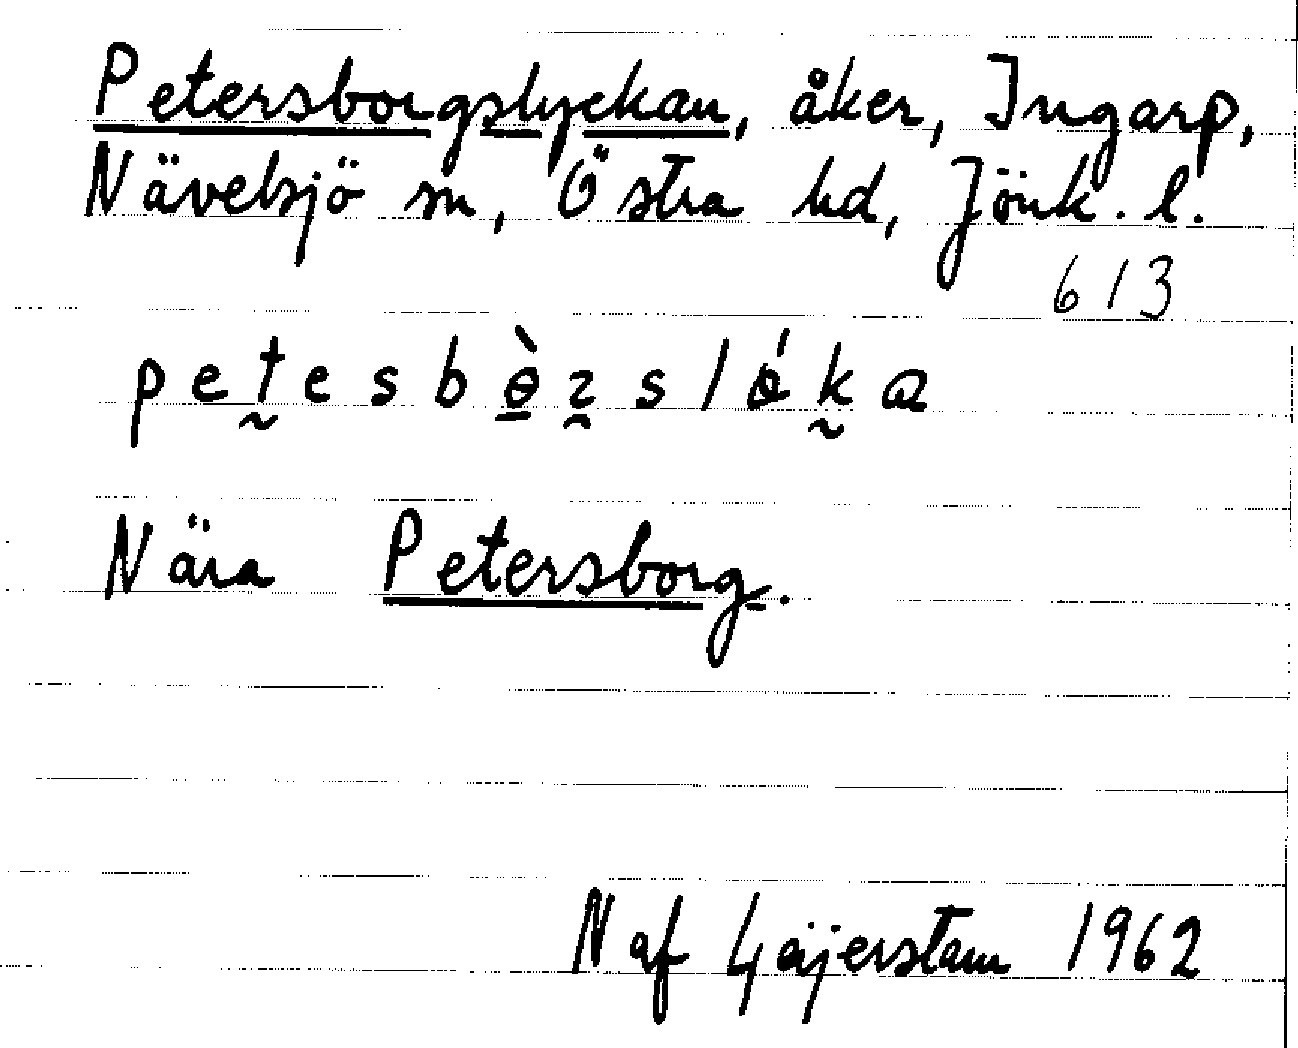 Petersborgslyckan, åker, Ingarp,
Nävelsjö sn, Östra hd, Jönk. l.
613
petesbèꝛslǿka
Nära Petersborg.
N af Gejerstam 1962